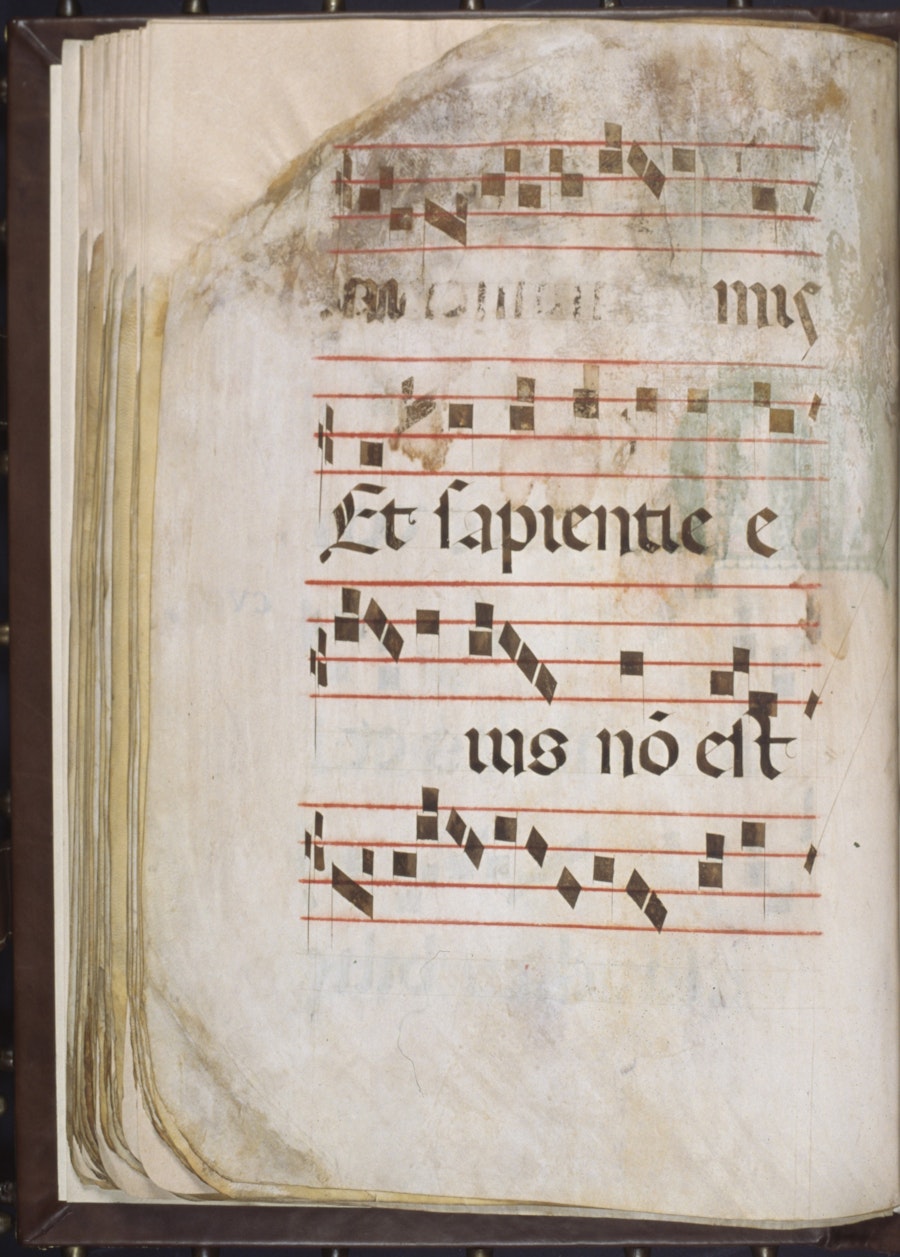 mus
Et sapientie e
ius nō est